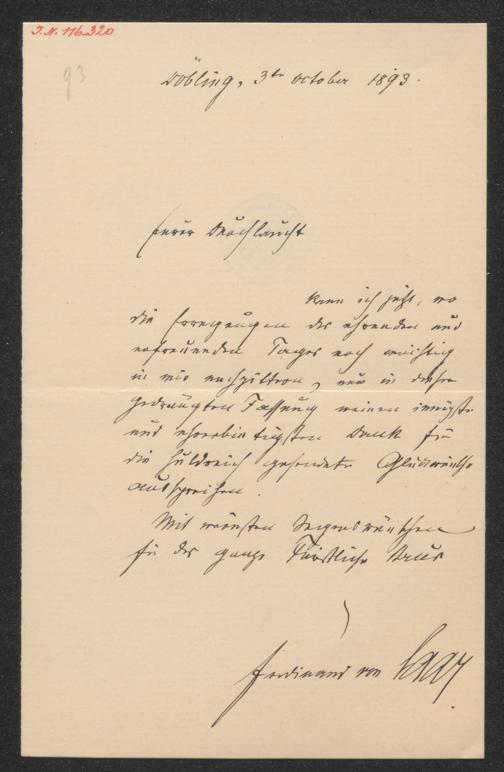 I.N. 116.320
93
Döbling, 3ten October 1893.
Eurer Durchlaucht
kann ich jetzt, wo
die Erregungen des ehrenden und
erfreuenden Tages noch mächtig
in mir nachzittern, nur in dieser
gedrängten Fassung meinen innigsten
und ehrerbietigsten Dank für
die huldreich gesendeten Glückwünsche
aussprechen.
Mit wärmsten Segenswünschen
für das ganze Fürstliche Haus
Ferdinand von Saar.